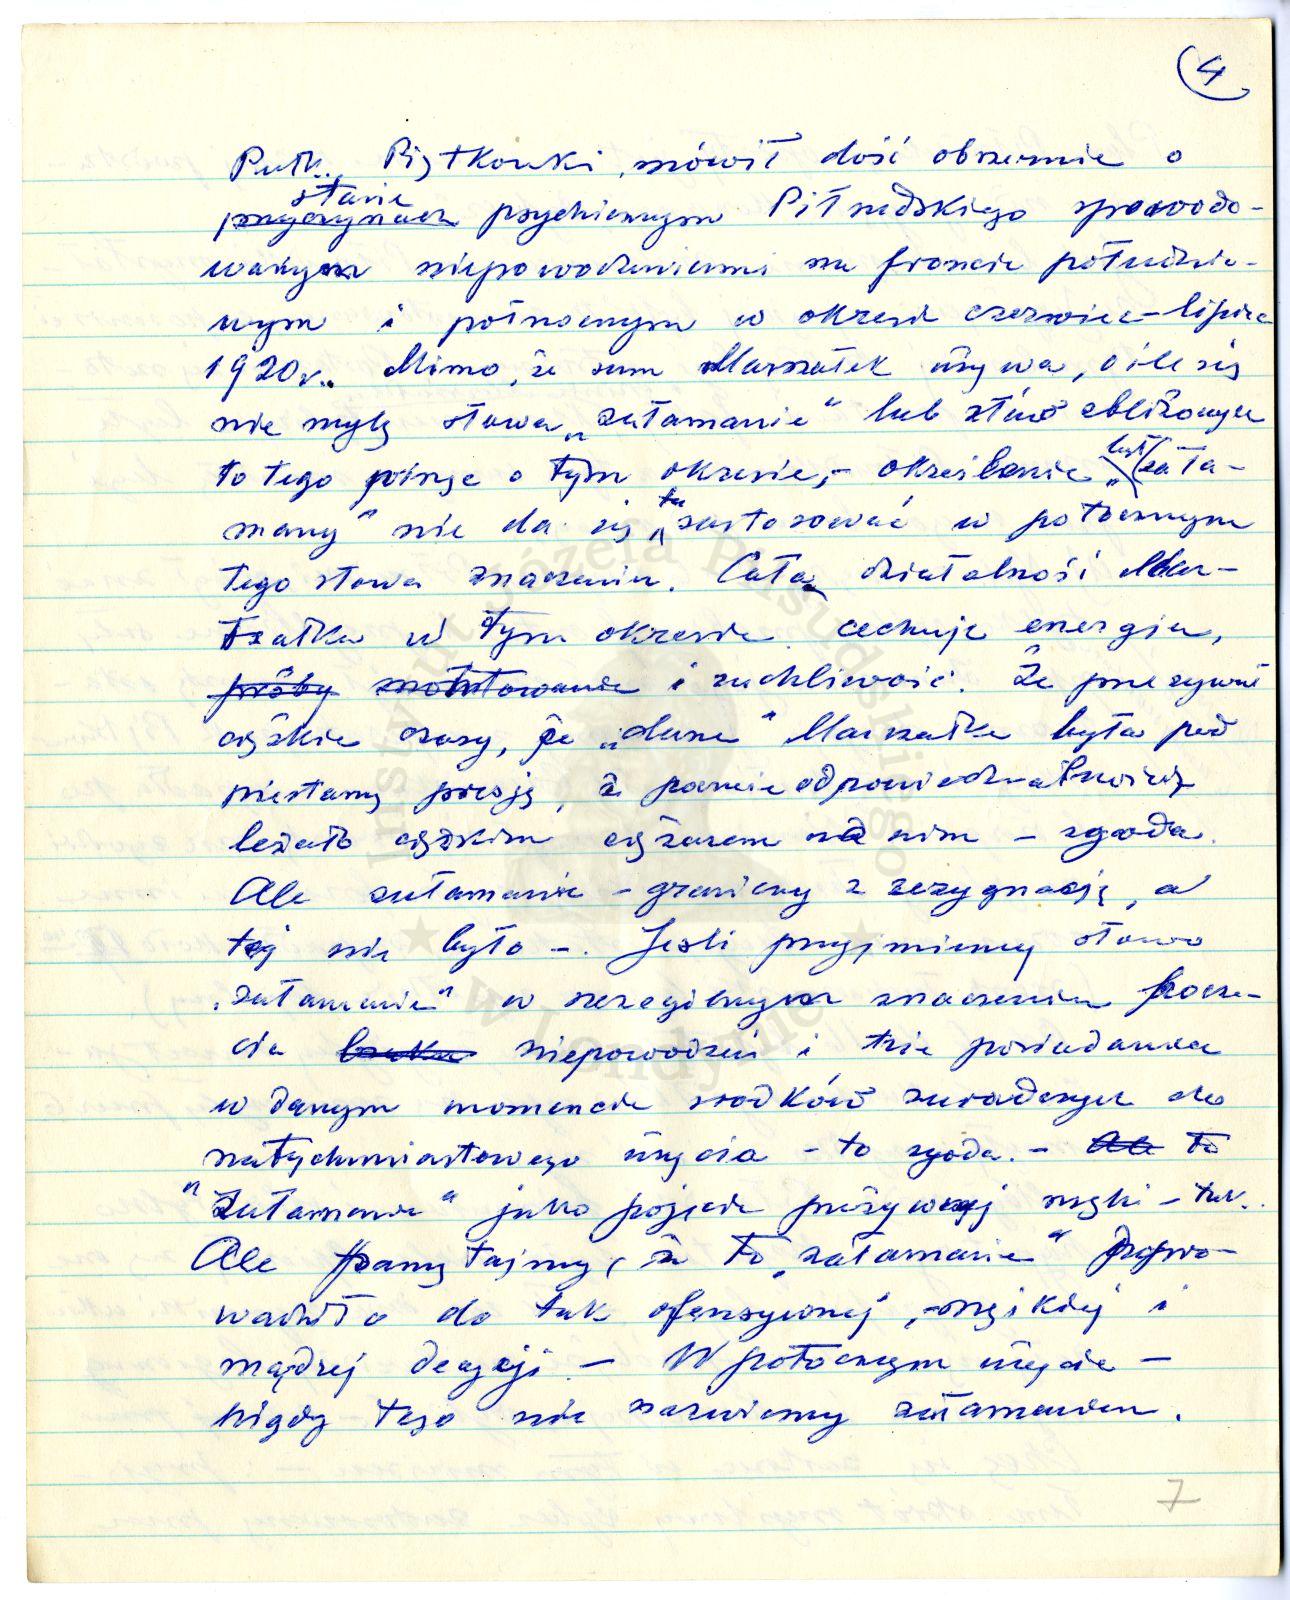 4
Putk. Piątkowski mówił dość obszernie o
stanie
przyczynach psychicznym Piłsudskiego spowodo-
wanym niepowodzeniami na froncie południo-
wym i północnym w okresie czerwiec-lipiec
1920r. Mimo, że sam Marszałek używa, o ile się
nie mylę słowa „załamanie" lub słów zbliżonych
do tego pisząc o tym okresie, - określenie „był zała-
many" nie da się tu zastosować w potocznym
tego słowa znaczeniu. Całą działalność Mar-
szałka w tym okresie cechuje energia,
próby i ruchliwość. Że przeżywał
ciężkie czasy, że „dusza" Marszałka była pod
nieustanną presją, że parcie odpowiedzialności
leżało ciężkim ciężarem na nim - zgoda.
Ale załamanie - graniczy z rezygnacją, a
tej nie było -. Jeśli przyjmiemy słowo
„załamanie" w szczególnym znaczeniu poczu-
cia braku niepowodzeń i nie posiadania
w danym momencie środków zaradczych do
natychmiastowego użycia - to zgoda. - Ale To
"Załamanie" jako pojęcie przeżywanej męki - tak.
Ale pamiętajmy, że to „załamanie" dopro-
wadziło do tak ofensywnej, męskiej i
mądrej decyzji. - W potocznym użyciu -
nigdy tego nie nazwiemy załamaniem.
7
Instytut Józefa Piłsudskiego
w Londynie